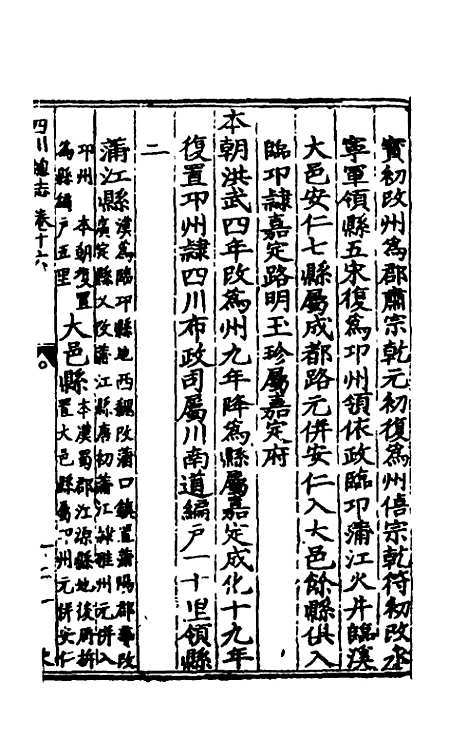 寳初改州為郡肅宗乾元初復為州僖宗乾符初改永
寧軍領縣五宋復為邛州領依政臨邛蒲江火井臨溪
大邑安仁七縣屬成都路元併安仁入大邑餘縣併入
臨邛隸嘉定路明玉珍屬嘉定府
本朝洪武四年改為州九年降為縣屬嘉定成化十九年
復置邛州隸四川布政司屬川南道編戶一十里領縣
二
蒲江縣漢為臨邛縣地西魏改蒲口鎮置蒲陽郡
廣定縣又改蒲江縣唐初蒲江隸雅州元併入
邛州 本朝復置
為縣編戶五里
大邑縣本漢蜀郡江源縣地後周
置大邑縣屬邛州元併安仁
四川總志 卷十六